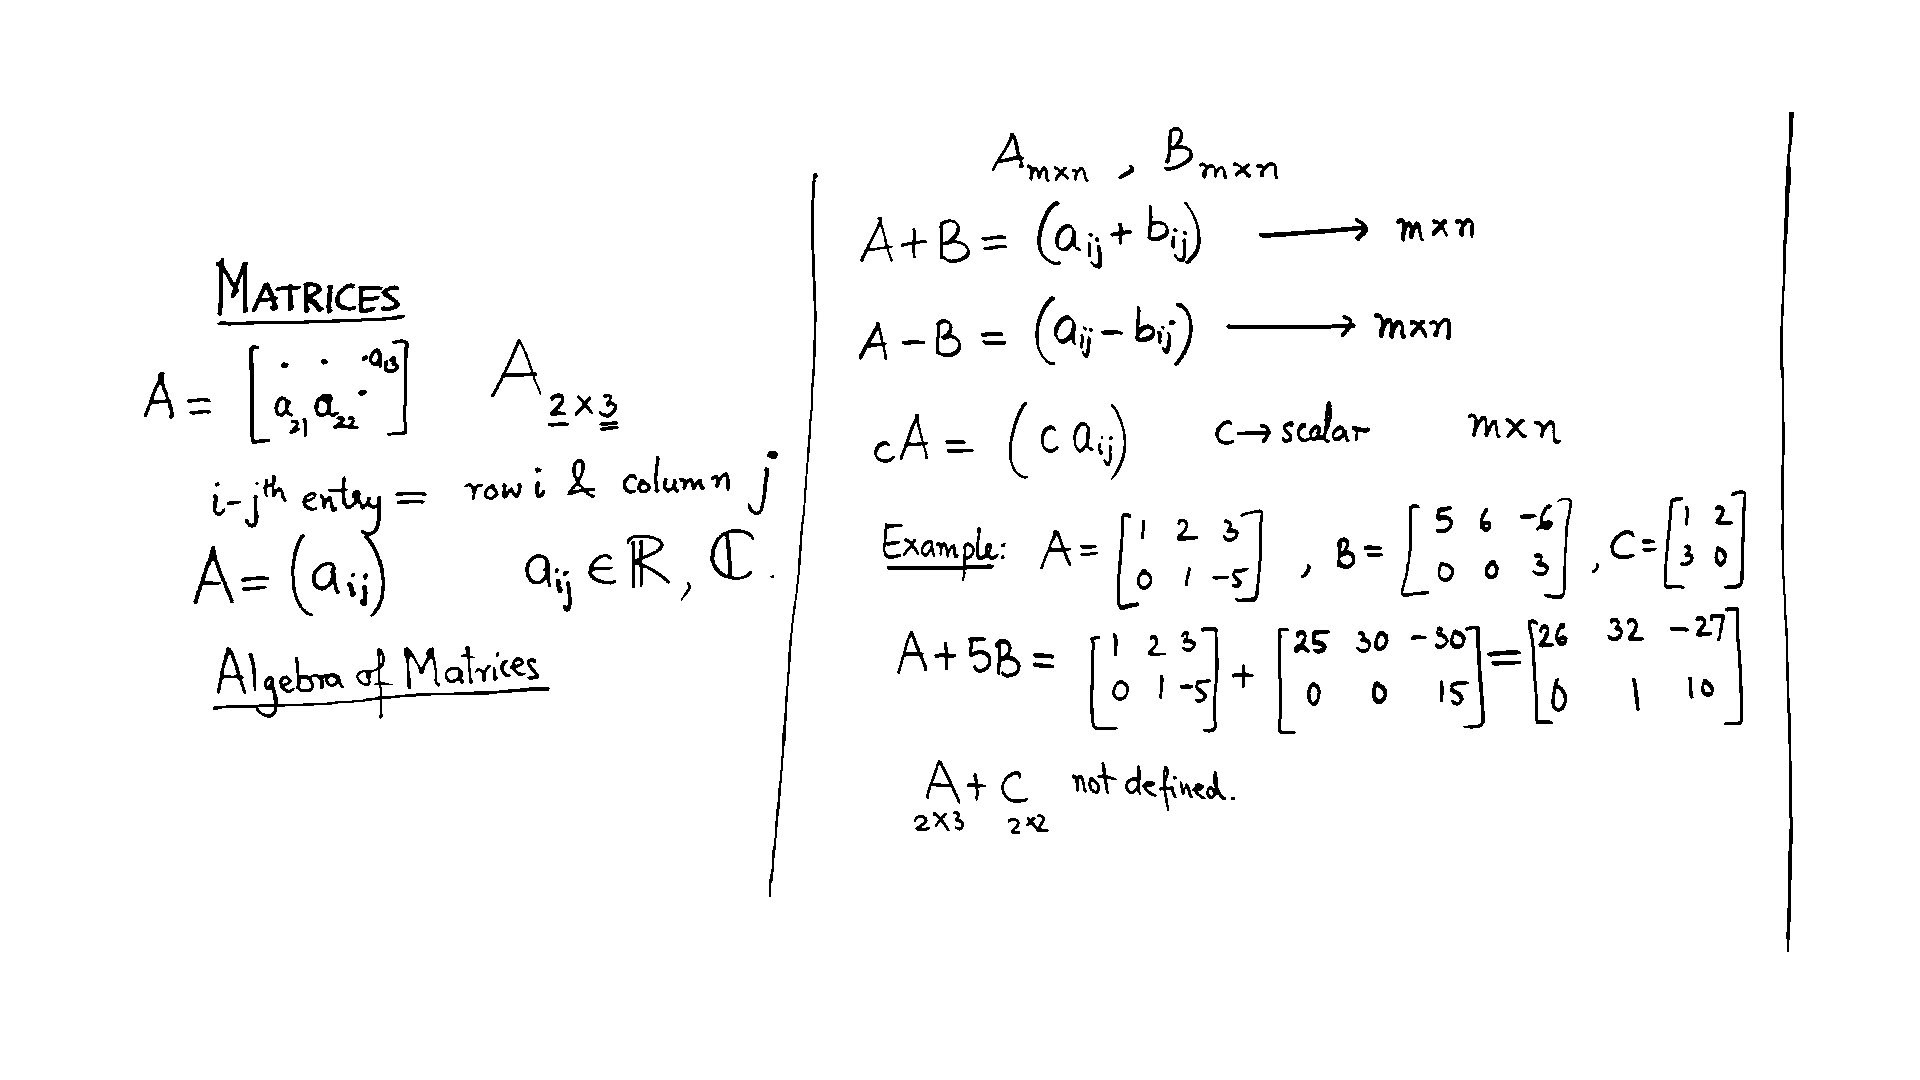 MATRICES
A = [ · · · a₁₃ ; a₂₁ a₂₂ · ] A₂ₓ₃
i-jth entry = row i & column j
A = (aᵢⱼ) aᵢⱼ ∈ ℝ, ℂ.
Algebra of Matrices
Aₘₓₙ , Bₘₓₙ
A+B = (aᵢⱼ + bᵢⱼ) ⟶ m×n
A−B = (aᵢⱼ − bᵢⱼ) ⟶ m×n
cA = (c aᵢⱼ) c → scalar m×n
Example: A = [1 2 3 ; 0 1 -5] , B = [5 6 -6 ; 0 0 3] , C = [1 2 ; 3 0]
A+5B = [1 2 3 ; 0 1 -5] + [25 30 -30 ; 0 0 15] = [26 32 -27 ; 0 1 10]
A + C not defined.
2×3 2×2